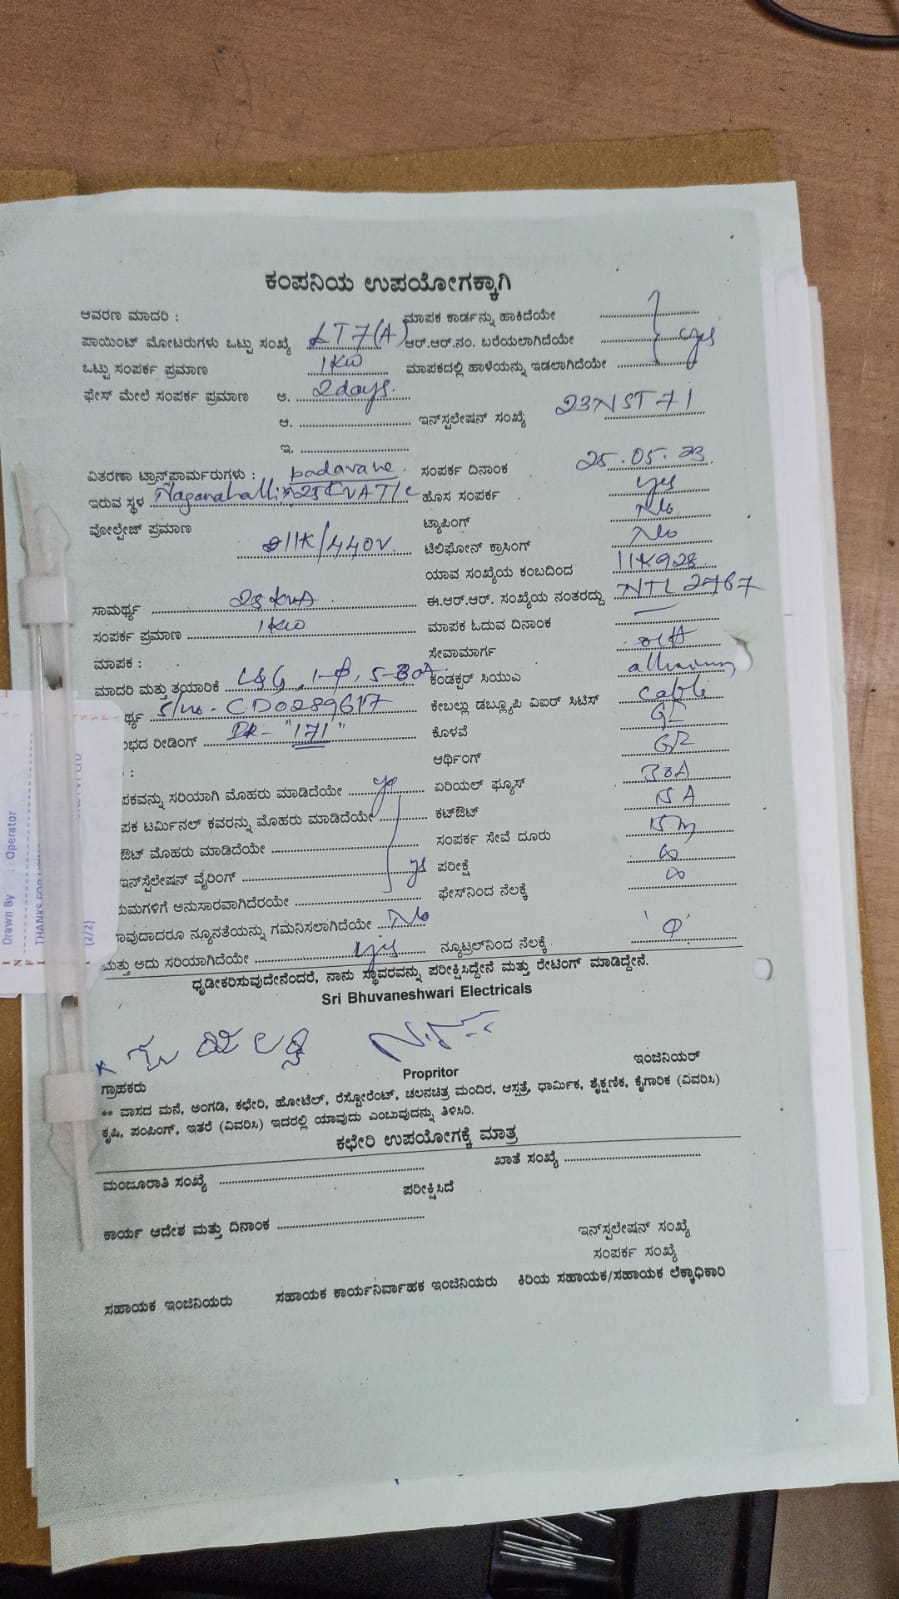 ಕಂಪನಿಯ ಉಪಯೋಗಕ್ಕಾಗಿ
ಆವರಣ ಮಾದರಿ : ಮಾಪಕ ಕಾರ್ಡನ್ನು ಹಾಕಿದೆಯೇ
ಪಾಯಿಂಟ್ ಮೋಟರುಗಳು ಒಟ್ಟು ಸಂಖ್ಯೆ LT7(A) ಆರ್.ಆರ್.ನಂ. ಬರೆಯಲಾಗಿದೆಯೇ yes
ಒಟ್ಟು ಸಂಪರ್ಕ ಪ್ರಮಾಣ 1KW ಮಾಪಕದಲ್ಲಿ ಹಾಳೆಯನ್ನು ಇಡಲಾಗಿದೆಯೇ
ಫೇಸ್ ಮೇಲೆ ಸಂಪರ್ಕ ಪ್ರಮಾಣ ಅ. 2days.
ಆ. ಇನ್‌ಸ್ಟಲೇಷನ್ ಸಂಖ್ಯೆ 23NST71
ಇ.
ವಿತರಣಾ ಟ್ರಾನ್ಸ್‌ಫಾರ್ಮರುಗಳು : badavane ಸಂಪರ್ಕ ದಿನಾಂಕ 25.05.23
ಇರುವ ಸ್ಥಳ Naganahalli 25KVA T/c ಹೊಸ ಸಂಪರ್ಕ yes
ವೋಲ್ಟೇಜ್ ಪ್ರಮಾಣ 11K/440V. ಟ್ಯಾಪಿಂಗ್ No
ಟೆಲಿಫೋನ್ ಕ್ರಾಸಿಂಗ್ No
ಯಾವ ಸಂಖ್ಯೆಯ ಕಂಬದಿಂದ 11K928
ಸಾಮರ್ಥ್ಯ 25 KVA ಈ.ಆರ್.ಆರ್. ಸಂಖ್ಯೆಯ ನಂತರದ್ದು NTL2767
ಸಂಪರ್ಕ ಪ್ರಮಾಣ 1KW ಮಾಪಕ ಓದುವ ದಿನಾಂಕ
ಮಾಪಕ : ಸೇವಾಮಾರ್ಗ oH
ಮಾದರಿ ಮತ್ತು ತಯಾರಿಕೆ L&G, 1-Φ, 5-30A. ಕಂಡಕ್ಟರ್ ಸಿಯುಎ
ರ್ಥ್ಯ S/no - CD0289617 ಕೇಬಲ್ಲು ಡಬ್ಲ್ಯೂಪಿ ವಿಐರ್ ಸಿಟಿಸ್ cable
ಭದ ರೀಡಿಂಗ್ "171" ಕೊಳವೆ GI
ಆರ್ಥಿಂಗ್
:
ಪಕವನ್ನು ಸರಿಯಾಗಿ ಮೊಹರು ಮಾಡಿದೆಯೇ yes ಏರಿಯಲ್ ಫ್ಯೂಸ್ 30A
ಪಕ ಟರ್ಮಿನಲ್ ಕವರನ್ನು ಮೊಹರು ಮಾಡಿದೆಯೇ ಕಟ್‌ಔಟ್
ಔಟ್ ಮೊಹರು ಮಾಡಿದೆಯೇ ಸಂಪರ್ಕ ಸೇವೆ ದೂರು
ಇನ್‌ಸ್ಟೆಲೇಷನ್ ವೈರಿಂಗ್ yes ಪರೀಕ್ಷೆ ∞
ಯಮಗಳಿಗೆ ಅನುಸಾರವಾಗಿದೆರಯೇ ಫೇಸ್‌ನಿಂದ ನೆಲಕ್ಕೆ ∞
ಾವುದಾದರೂ ನ್ಯೂನತೆಯನ್ನು ಗಮನಿಸಲಾಗಿದೆಯೇ No
ಮತ್ತು ಅದು ಸರಿಯಾಗಿದೆಯೇ yes ನ್ಯೂಟ್ರಲ್‌ನಿಂದ ನೆಲಕ್ಕೆ 'Φ'
ಧೃಡೀಕರಿಸುವುದೇನೆಂದರೆ, ನಾನು ಸ್ಥಾವರವನ್ನು ಪರೀಕ್ಷಿಸಿದ್ದೇನೆ ಮತ್ತು ರೇಟಿಂಗ್ ಮಾಡಿದ್ದೇನೆ.
Sri Bhuvaneshwari Electricals
ಇಂಜಿನಿಯರ್
Propritor
ಗ್ರಾಹಕರು
** ವಾಸದ ಮನೆ, ಅಂಗಡಿ, ಕಛೇರಿ, ಹೋಟೆಲ್, ರೆಸ್ಟೋರೆಂಟ್, ಚಲನಚಿತ್ರ ಮಂದಿರ, ಆಸ್ಪತ್ರೆ, ಧಾರ್ಮಿಕ, ಶೈಕ್ಷಣಿಕ, ಕೈಗಾರಿಕ (ವಿವರಿಸಿ)
ಕೃಷಿ, ಪಂಪಿಂಗ್, ಇತರೆ (ವಿವರಿಸಿ) ಇದರಲ್ಲಿ ಯಾವುದು ಎಂಬುವುದನ್ನು ತಿಳಿಸಿರಿ.
ಕಛೇರಿ ಉಪಯೋಗಕ್ಕೆ ಮಾತ್ರ
ಮಂಜೂರಾತಿ ಸಂಖ್ಯೆ ಖಾತೆ ಸಂಖ್ಯೆ
ಪರೀಕ್ಷಿಸಿದೆ
ಕಾರ್ಯ ಆದೇಶ ಮತ್ತು ದಿನಾಂಕ
ಇನ್‌ಸ್ಟಲೇಷನ್ ಸಂಖ್ಯೆ
ಸಂಪರ್ಕ ಸಂಖ್ಯೆ
ಸಹಾಯಕ ಇಂಜಿನಿಯರು ಸಹಾಯಕ ಕಾರ್ಯನಿರ್ವಾಹಕ ಇಂಜಿನಿಯರು ಕಿರಿಯ ಸಹಾಯಕ/ಸಹಾಯಕ ಲೆಕ್ಕಾಧಿಕಾರಿ
Drawn By : Operator
(2/2)